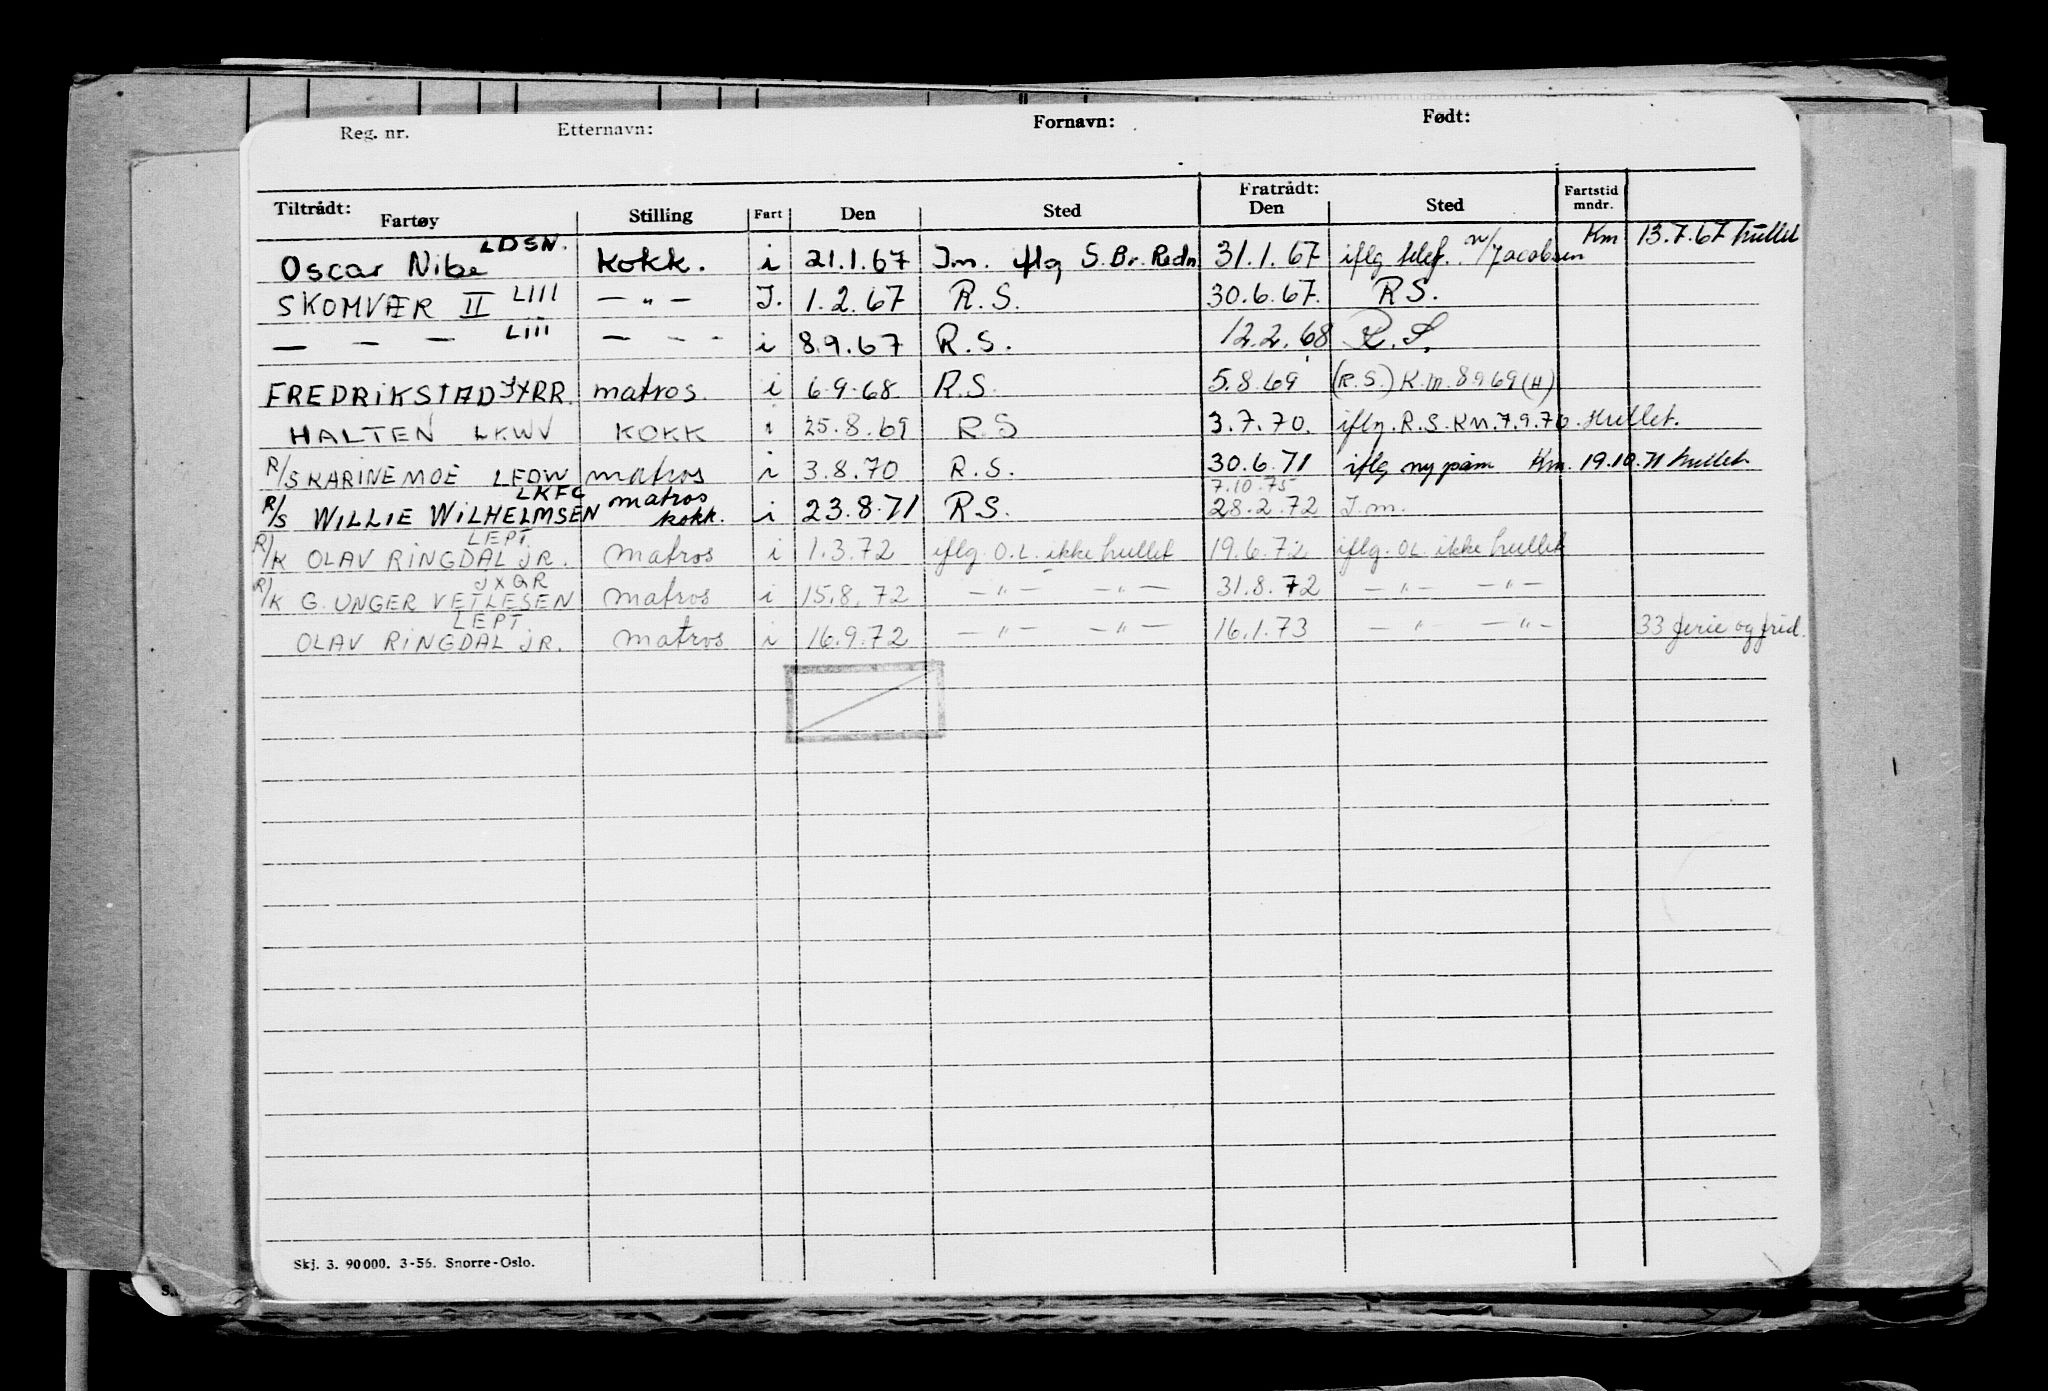 Reg. nr. Etternavn: Fornavn: Født:
Tiltrådt: Fratrådt:
Fartøy Stilling Fart Den Sted Den Sted Fartstid mndr.
Oscar Nibe LDSN. kokk. i 21.1.67 I.m. iflg S.Br.Redn 31.1.67 iflg telef. m/Jacobsen Km 13.7.67 hullet
SKOMVÆR II LIII — " — I. 1.2.67 R.S. 30.6.67. R.S.
— — — LIII — - - i 8.9.67 R.S. 12.2.68 R.S.
FREDRIKSTAD JXRR. matros. i 6.9.68 R.S. 5.8.69 (R.S.) K.m. 8969 (H)
HALTEN LKWV KOKK i 25.8.69 R.S 3.7.70. iflg. R.S. Km. 7.9.70. Hullet.
R/S KARINE MOE LEDW matros i 3.8.70 R.S. 30.6.71 iflg ny påm Km. 19.10.71 hullet
R/S WILLIE WILHELMSEN LKFC matros kokk. i 23.8.71 R.S. 7.10.75 28.2.72 I.m.
R/K OLAV RINGDAL JR. LEPT matros i 1.3.72 iflg. O.L. ikke hullet 19.6.72 iflg. O.L. ikke hullet
R/K G. UNGER VETLESEN JXQR matros i 15.8.72 — " — — " — 31.8.72 — " — — " —
OLAV RINGDAL JR. LEPT matros i 16.9.72 — " — — " — 16.1.73 — " — — " — 33 ferie og frid.
Skj. 3. 90000. 3-56. Snorre-Oslo.